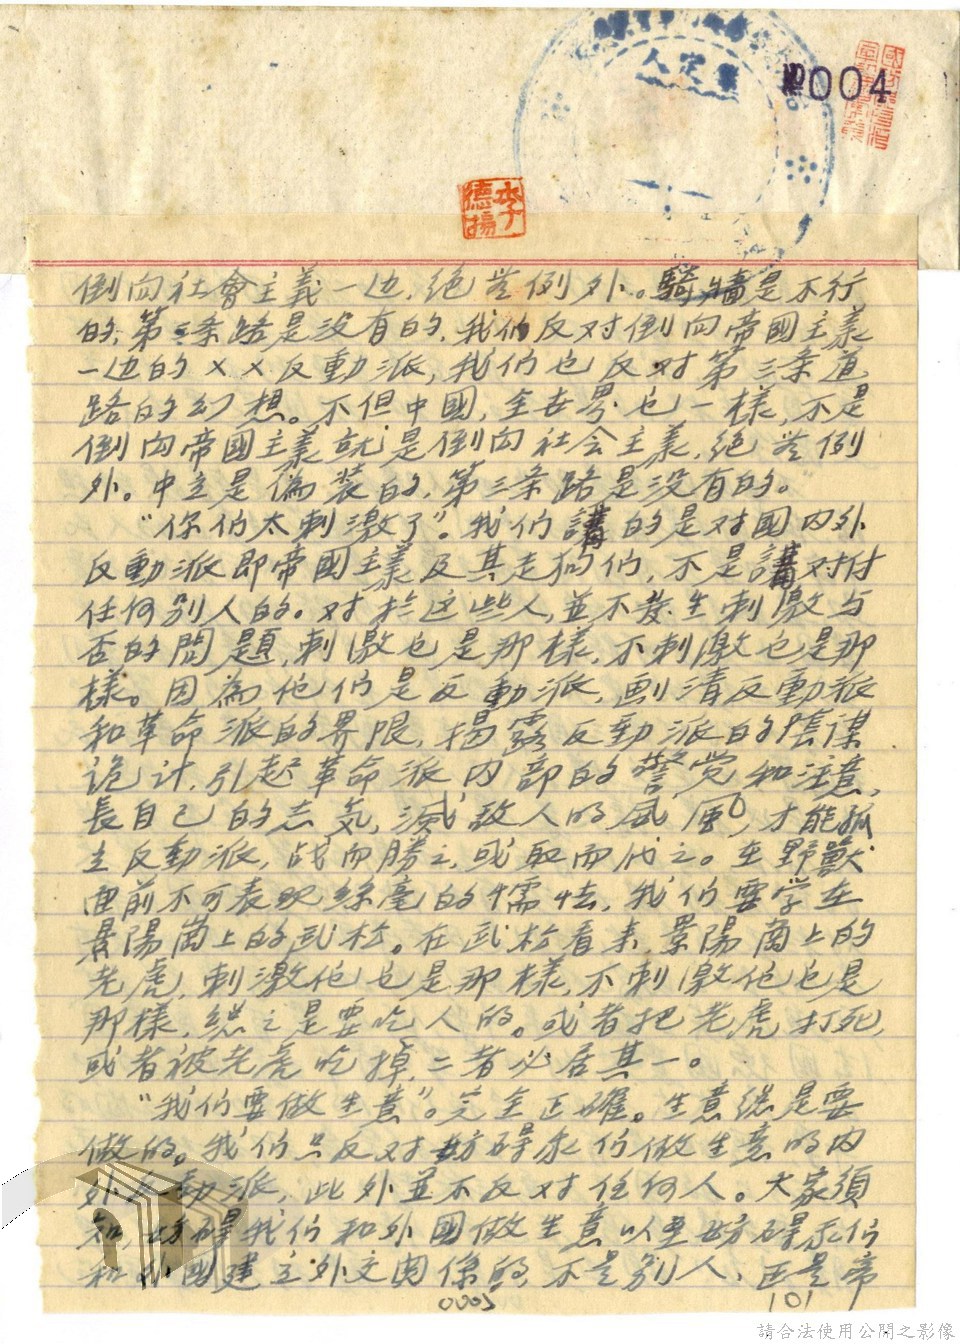 人定
004
李德揚
倒向社會主義一边,绝燊例外。騎墙是不行
的,第三条路是没有的,我们反对倒向帝國主義
一边的××反動派,我们也反对第三条道
路的幻想。不但中國,全世界也一樣,不是
倒向帝國主義就是倒向社会主義,绝燊例
外。中立是偽装的,第三条路是没有的。
“你们太刺激了”。我们講的是对國内外
反動派即帝國主義及其走狗们,不是講对付
任何别人的。对於这些人,並不發生刺激与
否的問題,刺激也是那樣,不刺激也是那
樣。因為他们是反動派,劃清反動派
和革命派的界限,揭露反動派的陰谋
诡计,引起革命派内部的警觉和注意,
長自己的志気,滅敌人的威風,才能孤
立反動派,战而勝之,或取而代之。在野獸
面前不可表现絲毫的懦怯,我们要学在
景陽崗上的武松。在武松看来,景陽崗上的
老虎,刺激他也是那樣,不刺激他也是
那樣,総之是要吃人的。或者把老虎打死,
或者被老虎吃掉,二者必居其一。
“我们要做生意”。完全正確。生意総是要
做的。我们只反对妨碍我们做生意的内
外反動派,此外並不反对任何人。大家須
知,妨碍我们和外國做生意以至妨碍我们
和外國建立外交関係的,不是别人,正是帝
0005
101
請合法使用公開之影像